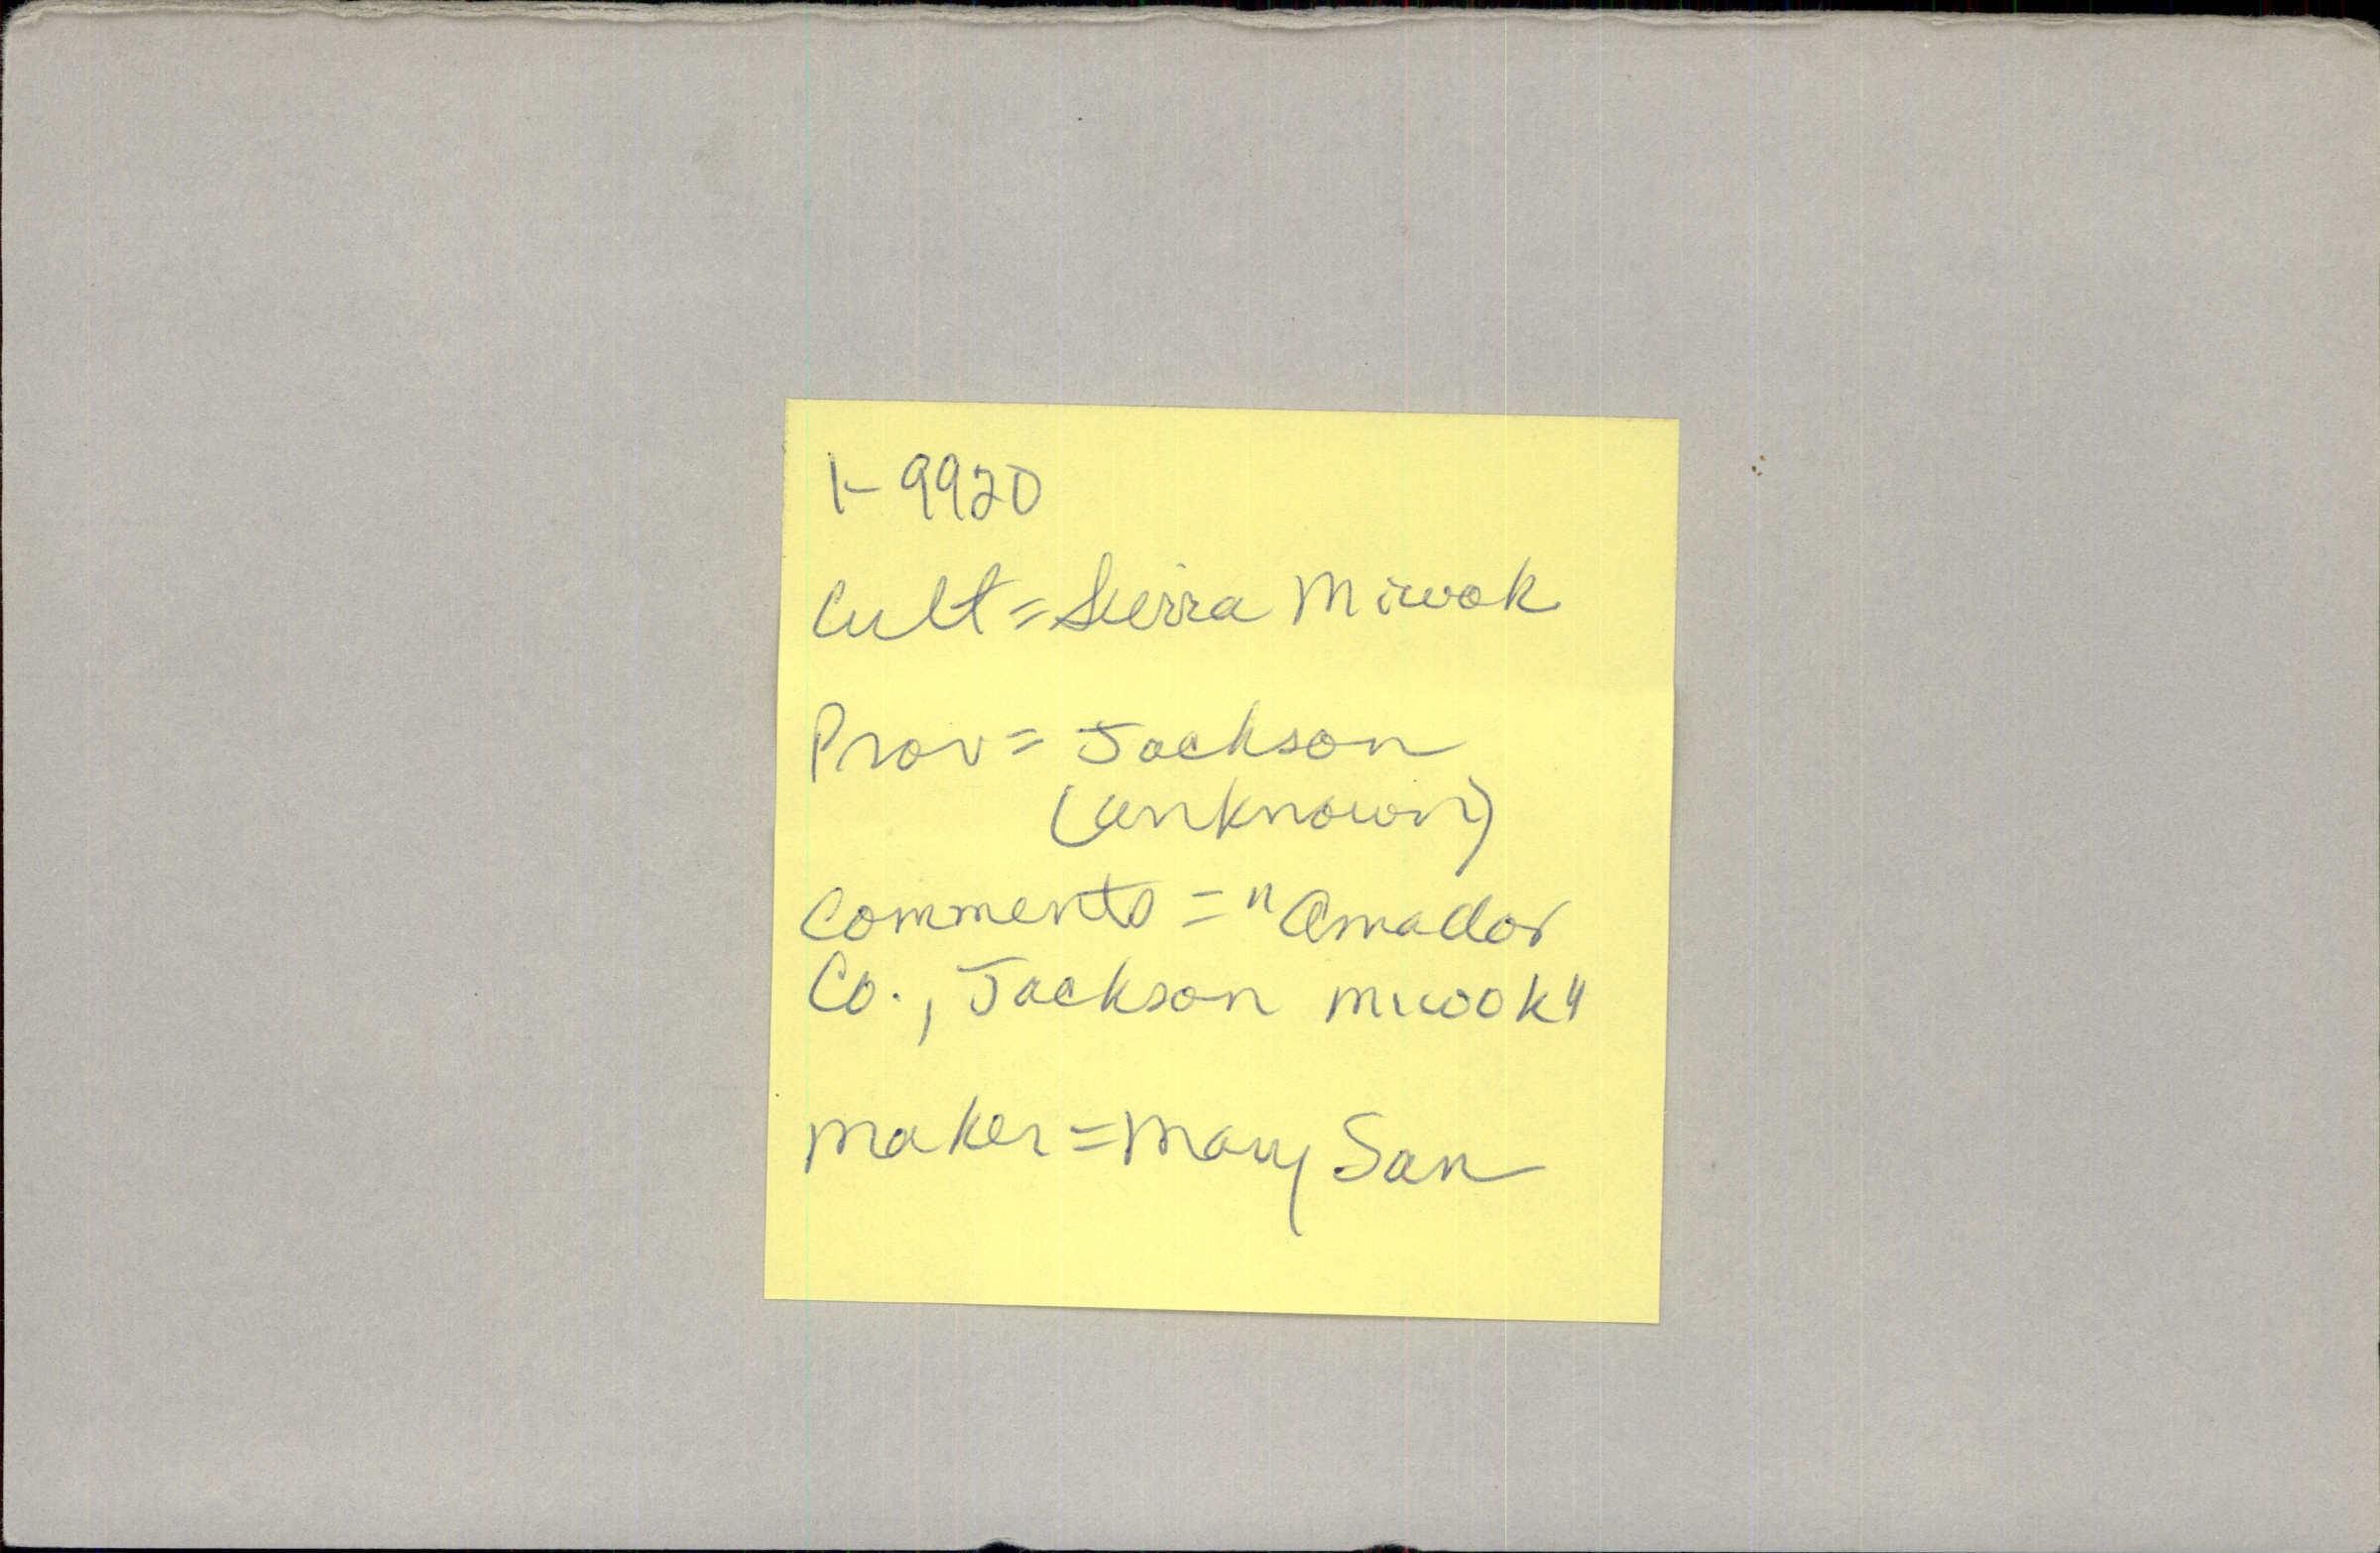 1-9920
Cult = Sierra Miwok
Prov = Jackson
(unknown)
Comments = "Amador
Co., Jackson Miwok"
Maker = Mary San